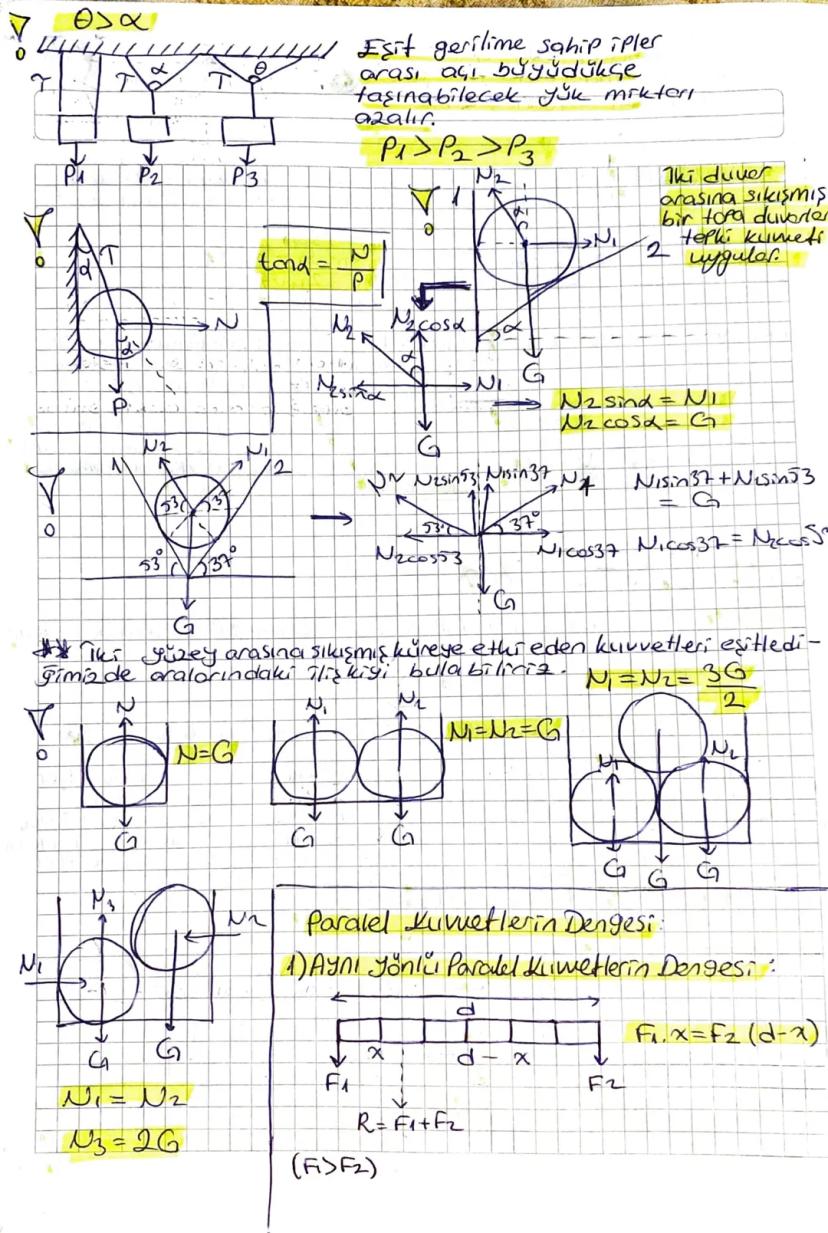 θ>α
Eşit gerilime sahip ipler
arası açı büyüdükçe
taşınabilecek yük miktarı
azalır.
P1>P2>P3
T
T
α
T
θ
P1
P2
P3
α
T
N
α
P
tanα = N/P
İki duvar
arasına sıkışmış
bir topa duvarlar
tepki kuvveti
uygular
1
N2
α
N1
2
α
G
N2
N2cosα
α
N2sinα
N1
G
N2 sinα = N1
N2 cosα = G
1
N2
N1
2
53
37
53°
37°
G
N2sin53
N1sin37
53°
37°
N2cos53
N1cos37
G
N1sin37+N2sin53
= G
N1cos37 = N2cos5
** İki yüzey arasına sıkışmış küreye etki eden kuvvetleri eşitledi-
ğimizde aralarındaki ilişkiyi bulabiliriz.
N1=N2= 3G/2
N
N=G
G
N1
N2
N1=N2=G
G
G
N1
N2
G
G
G
N3
N1
N2
G
G
N1 = N2
N3 = 2G
Paralel Kuvvetlerin Dengesi:
1) Aynı Yönlü Paralel Kuvvetlerin Dengesi:
d
x
d - x
F1
F2
R= F1+F2
F1.x=F2 (d-x)
(F1>F2)